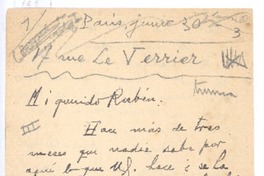 Paris, junio 30
3
17 rue Le Verrier
Mi querido Rubén:
III
Hace más de tres
meses que nadie sabe por
aquí lo que U. hace